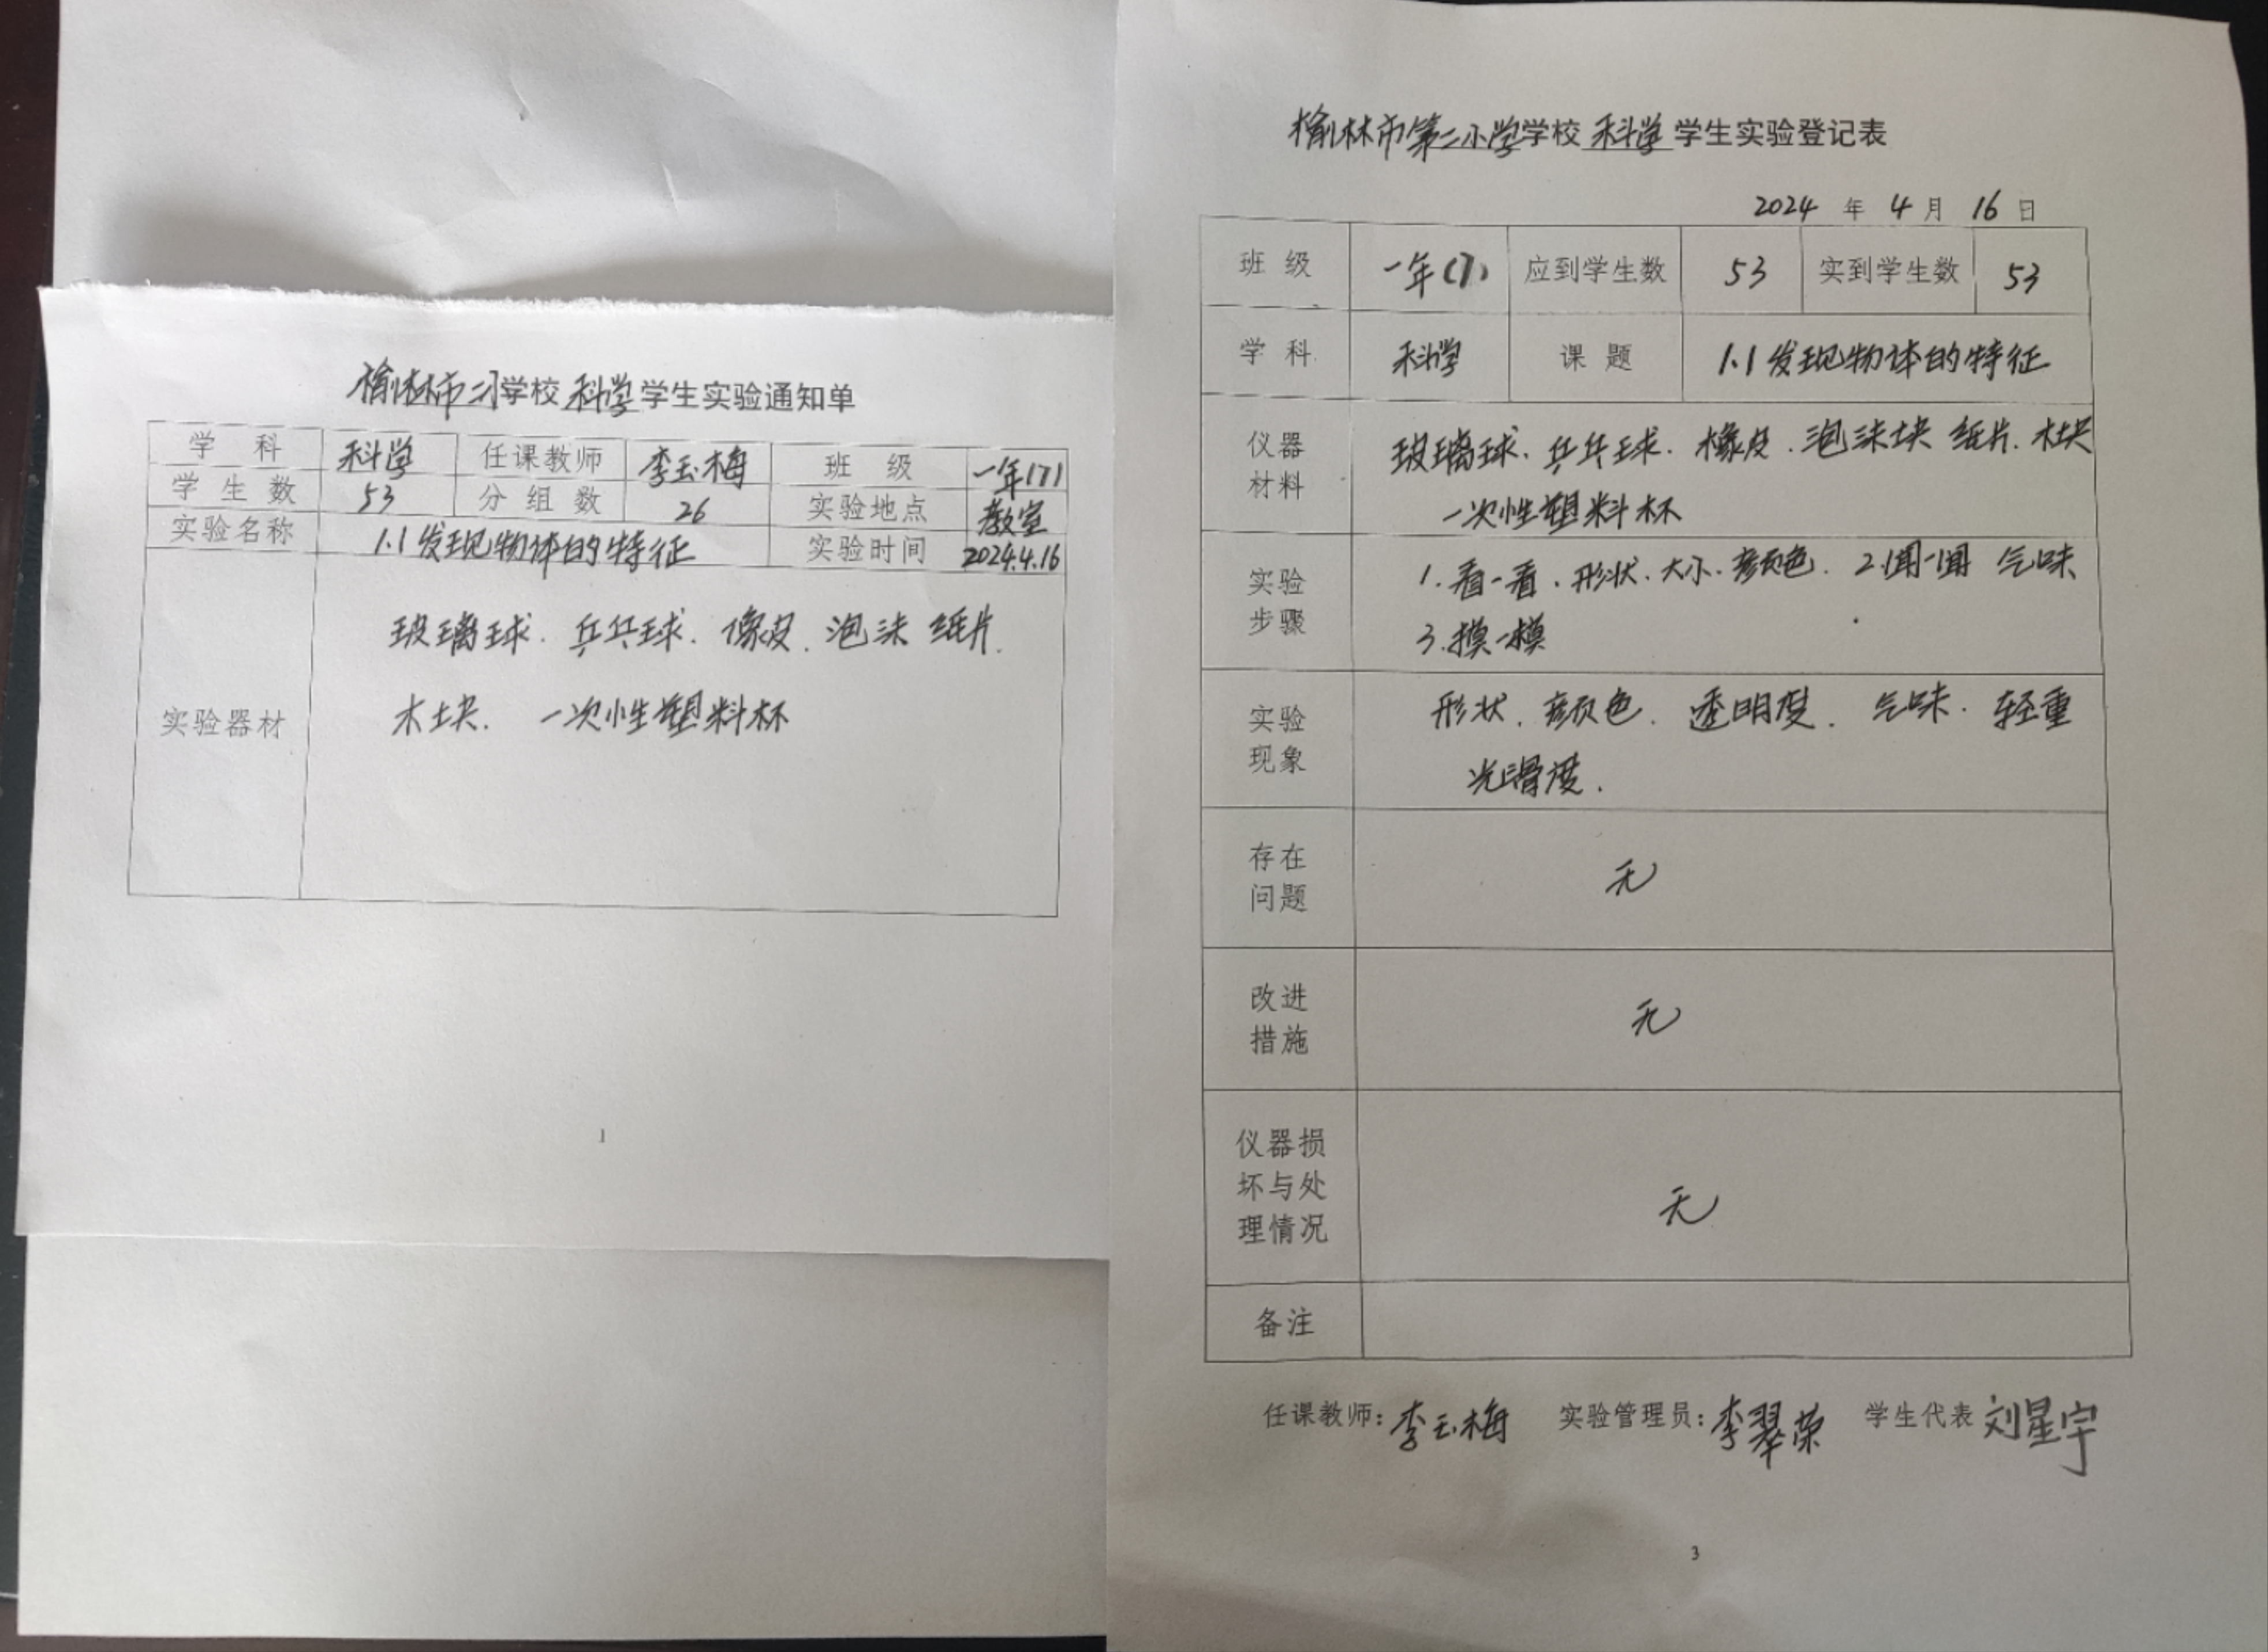 榆林市二小学校 科学 学生实验通知单
学 科 科学 任课教师 李玉梅 班 级 一年(7)
学 生 数 53 分 组 数 26 实验地点 教室
实验名称 1.1 发现物体的特征 实验时间 2024.4.16
实验器材
玻璃球. 乒乓球. 像皮. 泡沫 纸片.
木块. 一次性塑料杯
1
榆林市第二小学学校 科学 学生实验登记表
2024 年 4 月 16 日
班 级 一年(7) 应到学生数 53 实到学生数 53
学 科 科学 课 题 1.1 发现物体的特征
仪器
材料
玻璃球. 乒乓球. 橡皮. 泡沫块 纸片. 木块
一次性塑料杯
实验
步骤
1. 看一看. 形状. 大小. 颜色. 2.闻一闻 气味
3.摸一摸
实验
现象
形状. 颜色. 透明度. 气味. 轻重
光滑度.
存在
问题
无
改进
措施
无
仪器损
坏与处
理情况
无
备注
任课教师: 李玉梅 实验管理员: 李翠荣 学生代表 刘星宇
3